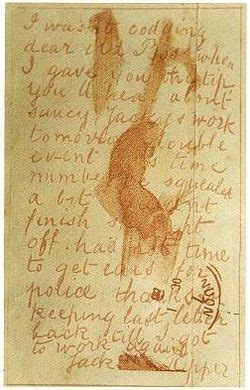 I wasnt codding
dear old Boss when
I gave you the tip
you'll hear about
saucy Jackys work
tomorrow double
event this time
number squealed
a bit
finish
off. had not time
to get ears for
police thanks
keeping last letter
back till I got
to work again
Jack ripper